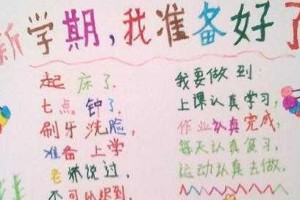 新学期,我准备好了
起床了.
七点钟了.
刷牙洗脸,
准备上学
老师说过,
不可以迟到
我要做到
上课认真学习,
作业认真完成,
每天认真复习,
运动认真去做.